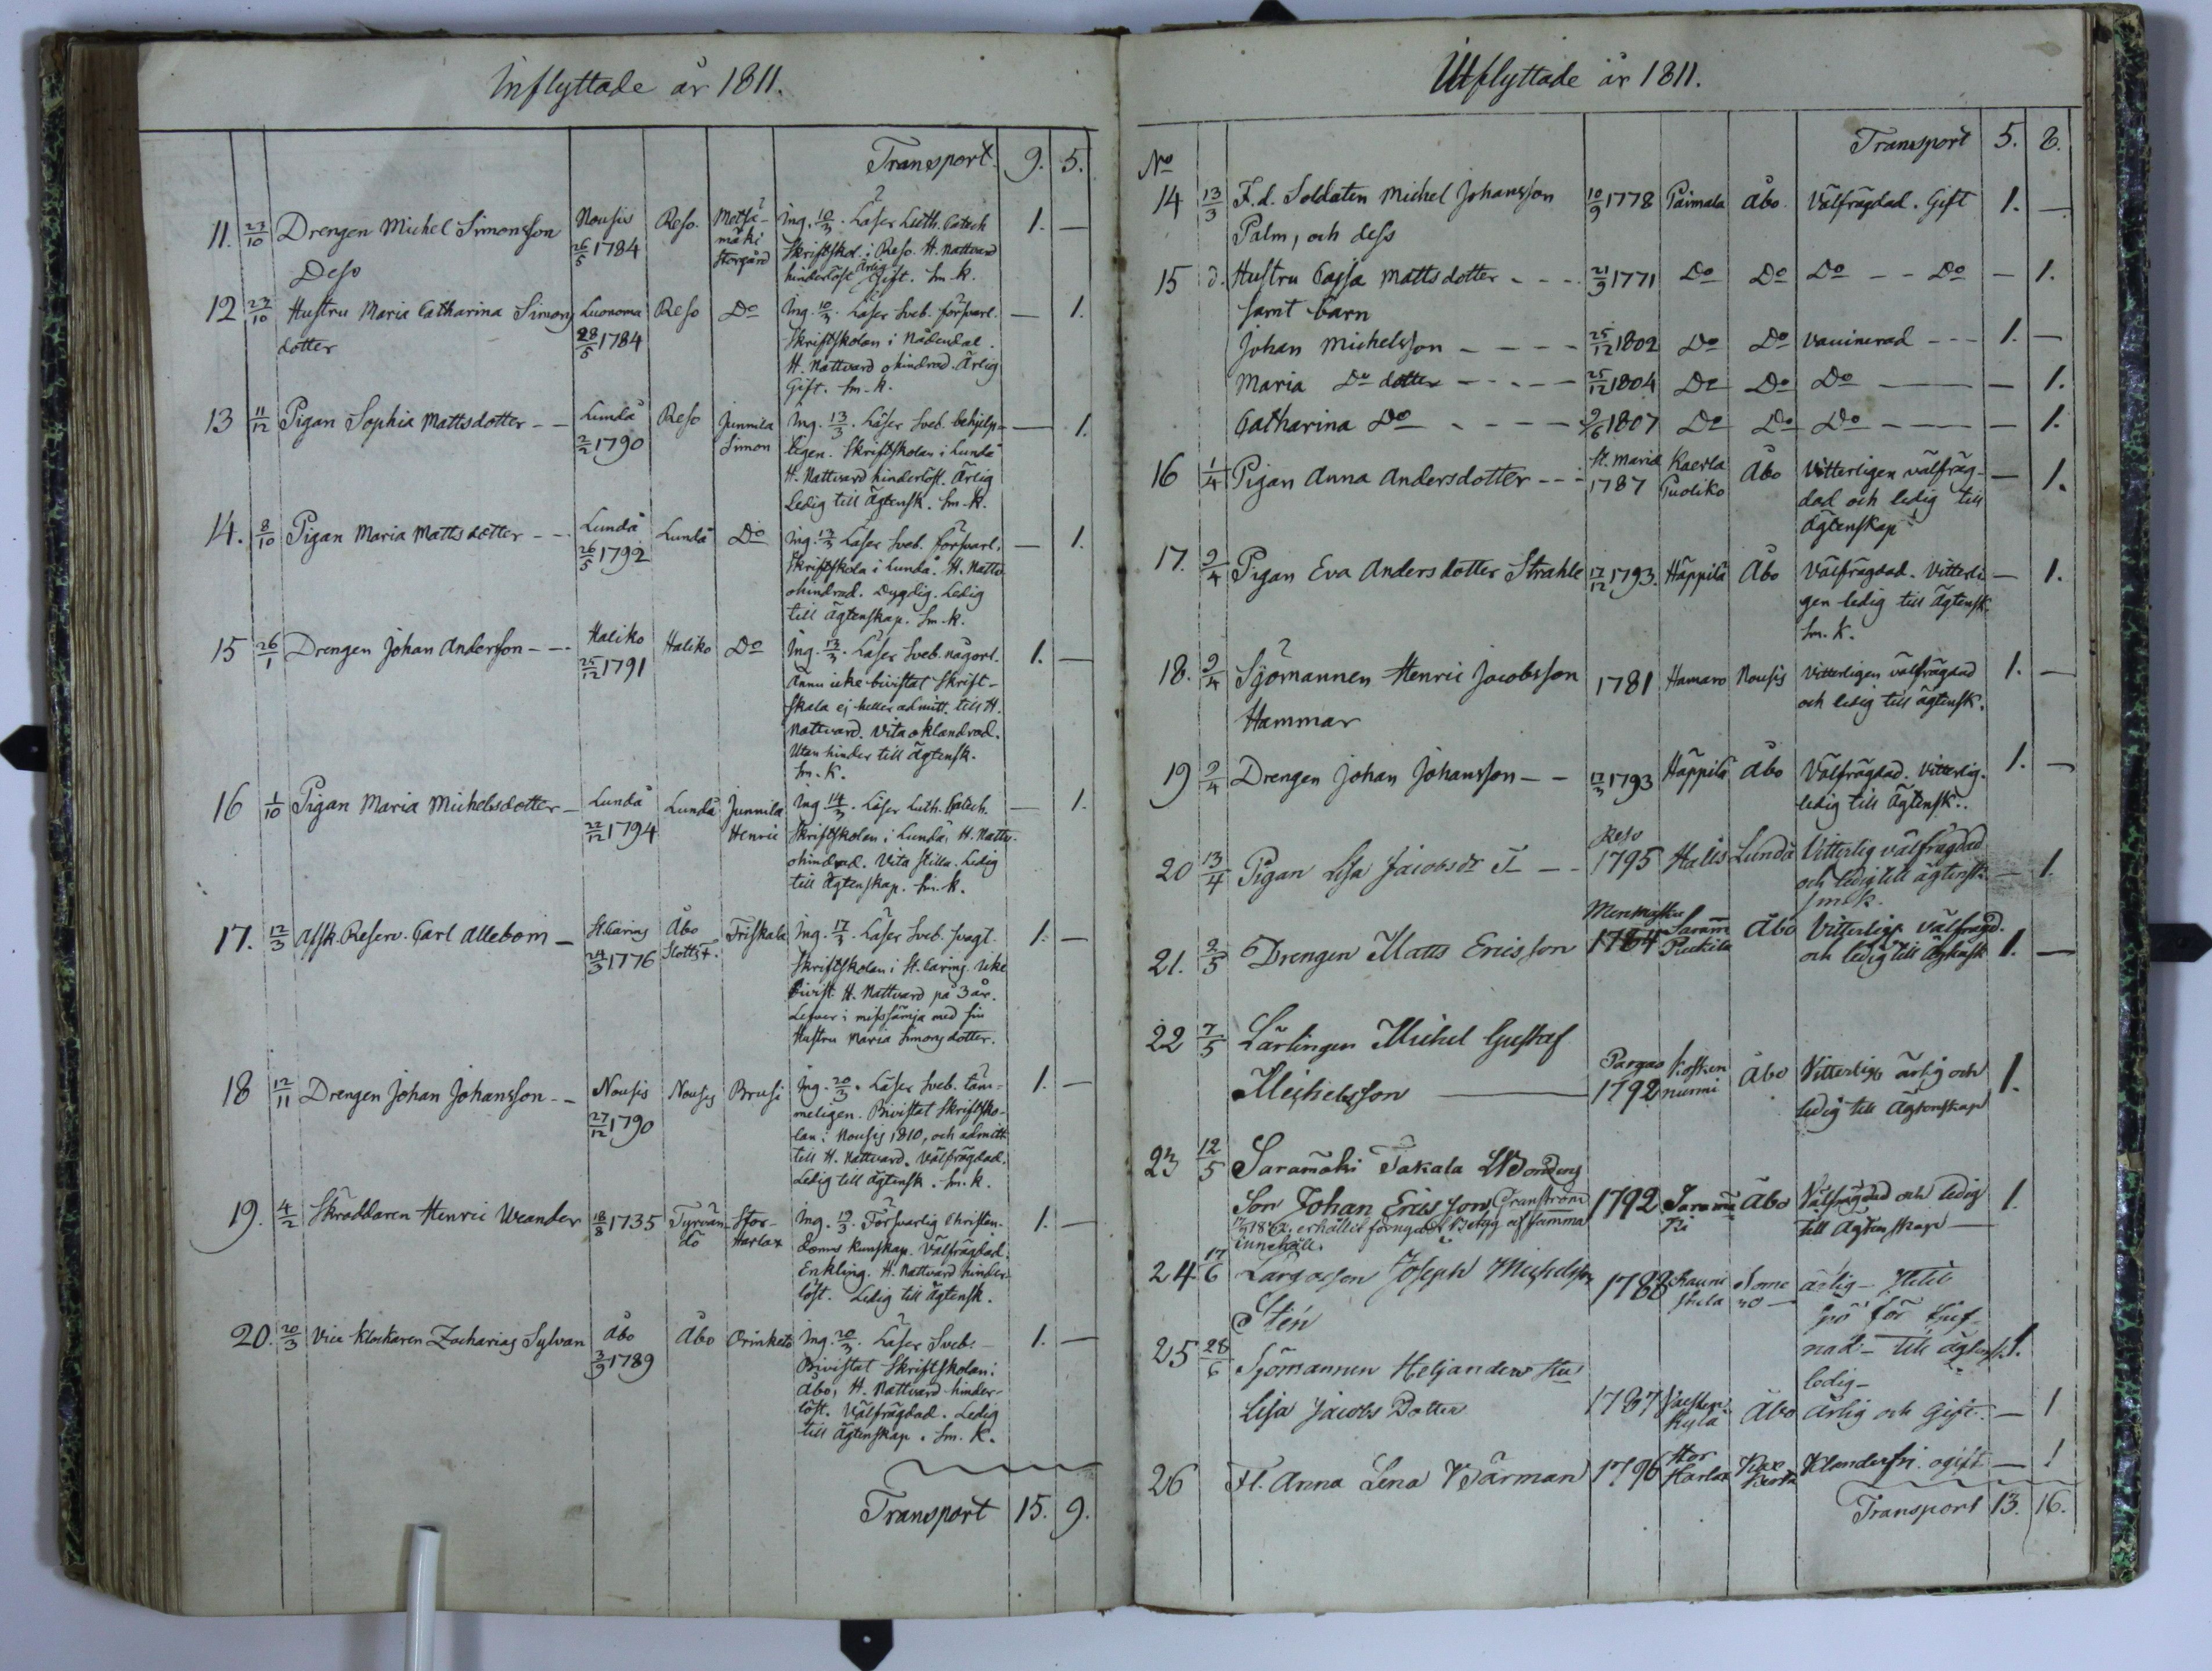 Inflyttade år 1811.
Transport. 9. 5.
11. 27/10 Drengen Michel Simonsson Nousis Reso. Metsä- Ing. 10/3. Läser Luth. Catech 1. —
Dess 26/5 1784 mäki Skriftskol. i Reso. H. Nattvard
Storgård hinderlöst Ärlig Gift. Sm. K.
12 27/10 Hustru Maria Catharina Simons Luonoma Reso Do Ing. 10/3. Läser Sveb. försvarl. — 1.
dotter 28/5 1784 Skriftskolan i Nådendal.
H. Nattvard ohindrad. Ärlig
Gift. Sm. K.
13 11/12 Pigan Sophia Mattsdotter - - Lundå Reso Junnila Ing. 13/3. Läser Sveb. behjelp- — 1.
2/2 1790 Simon ligen. Skriftskolan i Lundå
H. Nattvard hinderlöst. Ärlig
Ledig till Ägtensk. Sm. K.
14. 8/10 Pigan Maria Mattsdotter - - Lundå Lundå Do Ing. 13/3 Läser Sveb. försvarl. — 1.
26/5 1792 Skriftskola i Lundå. H. Nattv.
ohindrad. Dygdig. Ledig
till Ägtenskap. Sm. K.
15 26/1 Drengen Johan Andersson - - Haliko Haliko Do Ing. 13/3. Läser Sveb. någorl. 1. —
25/12 1791 Ännu icke bivistat Skrift-
skola ej heller admitt. till H.
Nattvard. Vita oklandrad.
Utan hinder till Ägtensk.
Sm. K.
16 1/10 Pigan Maria Michelsdotter - Lundå Lundå Junnila Ing. 14/3. Läser Luth. Catech. — 1.
22/12 1794 Henric Skriftskolan i Lundå, H. Nattv.
ohindrad. Vita stilla. Ledig
till Ägtenskap. Sm. K.
17. 12/3 Afsk. Reserv. Carl Allebom - St. Carins Åbo Friskala Ing. 17/3. Läser Sveb. svagt. 1. —
24/3 1776 Slotts F. Skriftskolan i St. Carins. Icke
bivist. H. Nattvard på 3 år.
Lefver i missämja med sin
Hustru Maria Simonsdotter.
18 12/11 Drengen Johan Johansson - - Nousis Nousis Brusi Ing. 20/3. Läser Sveb. täm- 1. —
27/12 1790 meligen. Bivistat Skriftsko-
lan i Nousis 1810, och admitt
till H. Nattvard. Välfrägdad.
Ledig till Ägtensk. Sm. K.
19. 4/2 Skräddaren Henric Weander 18/8 1735 Tyrvän Stor- Ing. 19/3. Försvarlig Christen- 1. —
dö Harlax doms kunskap. Välfrägdad.
Enkling. H. Nattvard hinder
löst. Ledig till Ägtensk.
20. 20/3 Vice Klockaren Zacharias Sylvan Åbo Åbo Orinketo Ing. 20/3. Läser Sveb. 1. —
3/9 1789 Bivistat Skriftskolan i
Åbo, H. Nattvard hinder-
löst. Välfrägdad. Ledig
till Ägtenskap. Sm. K.
Transport 15. 9.
Utflyttade år 1811.
No Transport 5. 8.
14 13/3 F.d. Soldaten Michel Johansson 10/9 1778 Paimala Åbo. Välfrägdad. Gift 1. —
Palm, och dess
15 d. Hustru Cajsa Mattsdotter - - - 21/9 1771 Do Do Do - - Do — 1.
samt barn
Johan Michelsson - - - - 25/12 1802 Do Do vaccinerad - - - 1. —
Maria Do dotter - - - - 25/12 1804 Do Do Do — 1.
Catharina Do - - - - 9/6 1807 Do Do Do — 1.
16 1/4 Pigan Anna Andersdotter - - - St. Mariæ Kaerla Åbo Vitterligen välfräg- — 1.
1787 Puoliko dad och ledig till
Ägtenskap
17. 9/4 Pigan Eva Andersdotter Strahle 17/12 1793. Häppilä Åbo Välfrägdad. Vitterli — 1.
gen ledig till Ägtensk.
Sm. K.
18. 9/4 Sjömannen Henric Jacobsson 1781 Hamaro Nousis Vitterligen välfrägdad 1. —
Hammar och ledig till ägtensk.
19 9/4 Drengen Johan Johansson - - 17/3 1793 Häppilä Åbo Välfrägdad. Vitterlig. 1. —
ledig till Ägtensk..
20 13/4 Pigan Lisa Jacobsdr - - Reso 1795 Halis Lundå Vitterlig välfrägdad — 1.
och ledig till ägtensk.
Sm. K.
21. 2/5 Drengen Matts Ericsson 1784 Saram Åbo Vitterligt välfrägd. 1. —
och ledig till Ägtensk
22 7/5 Lärlingen Michel Gustaf
Michelsson Pargas 1792 Kosken nurmi Åbo Vitterligt ärlig och 1.
ledig till Ägtenskap
23 12/5 Saramäki Takala Bondens
Son Johan Ericsson Granström 1792 Saramä Åbo Välfrägdad och ledig 1.
erhållit förnyadt Betyg af samma ki till Ägtenskap —
innehåll.
24 17/6 Joseph Michelsson 1788 Kauni Some ärlig —
Stén stula ro —
för tjuf-
nad — till ägtensk. 1.
25 28/6 Sjömannen Heljanders Hu ledig —
Lisa Jacobs Dotter 1787 kylä Åbo ärlig och Gift. — 1
26 Fl. Anna Lena Wärman 1796 Stor Klanderfri ogift — 1
Harlax
Transport 13. 16.